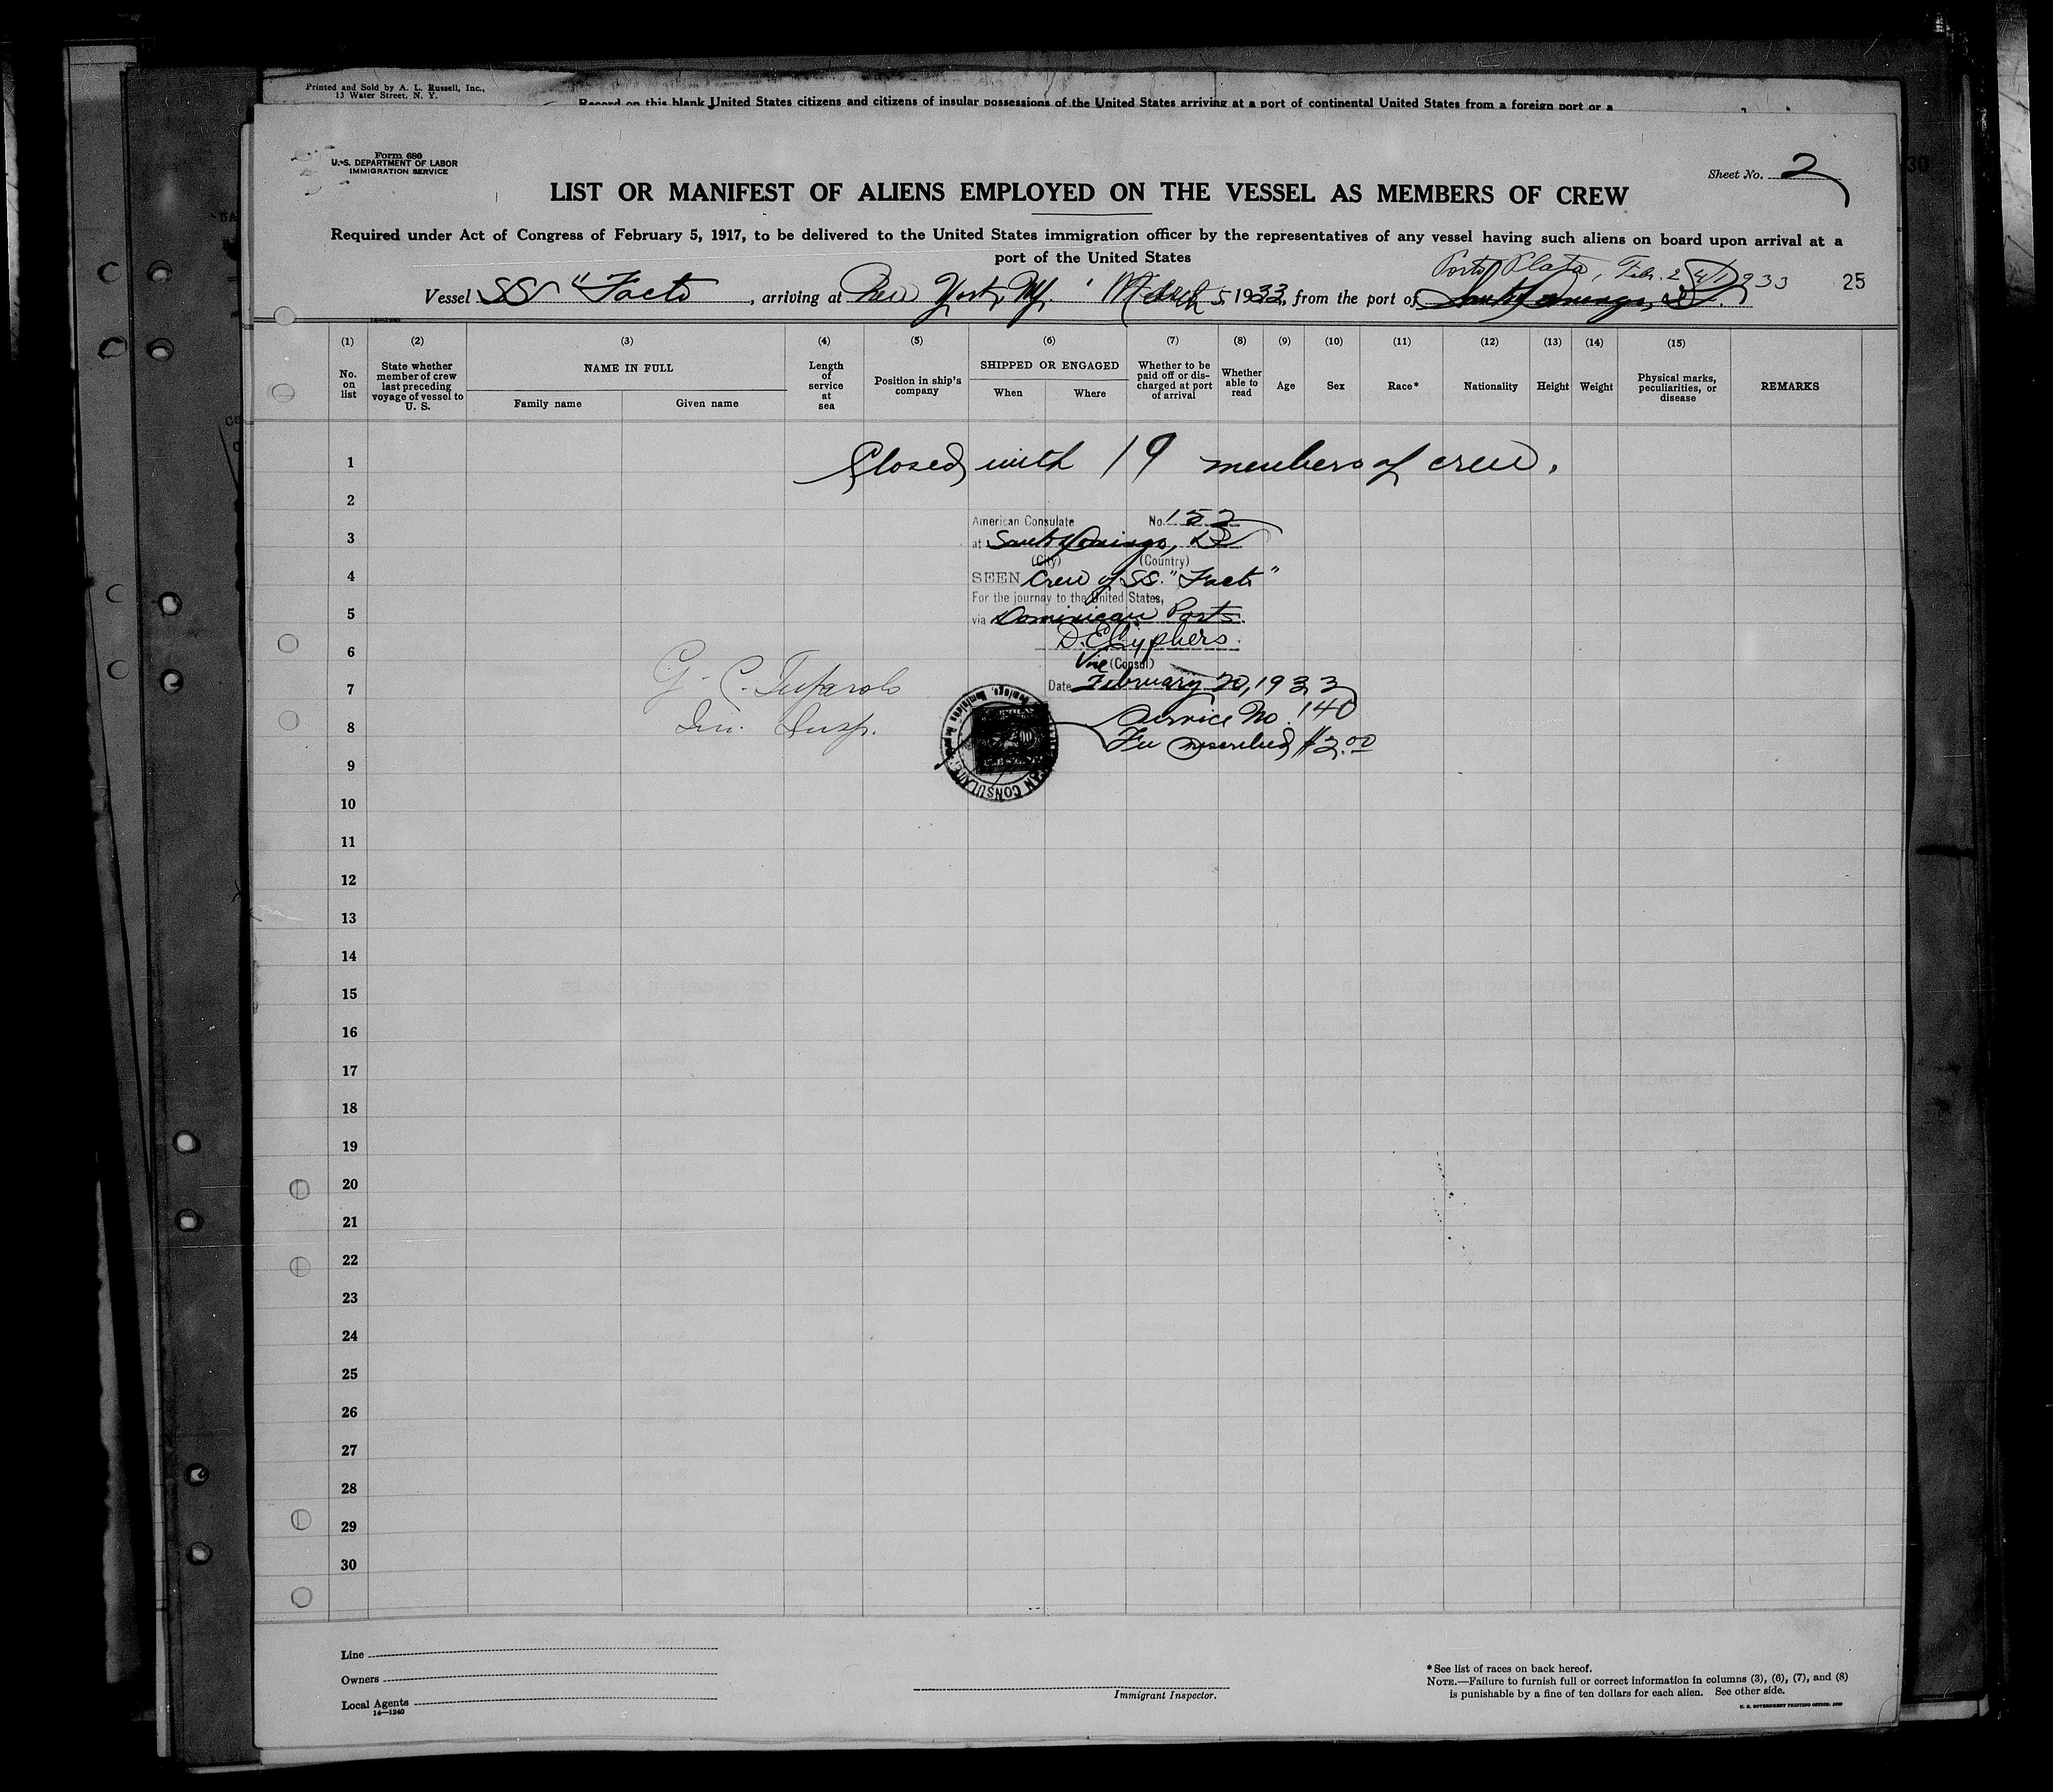 Printed and Sold by A. L. Russell, Inc.,
13 Water Street, N. Y.
Record on this blank United States citizens and citizens of insular possessions of the United States arriving at a port of continental United States from a foreign port or a
Form 680
U. S. DEPARTMENT OF LABOR
IMMIGRATION SERVICE
Sheet No. 2
LIST OR MANIFEST OF ALIENS EMPLOYED ON THE VESSEL AS MEMBERS OF CREW
Required under Act of Congress of February 5, 1917, to be delivered to the United States immigration officer by the representatives of any vessel having such aliens on board upon arrival at a
port of the United States
Porto Plata, Feb. 1933
Vessel SS "Facto , arriving at New York, NY. March 5 1933, from the port of Santo Domingo, DR. 25
(1) (2) (3) (4) (5) (6) (7) (8) (9) (10) (11) (12) (13) (14) (15)
No. on list
State whether member of crew last preceding voyage of vessel to U. S.
NAME IN FULL
Family name
Given name
Length of service at sea
Position in ship's company
SHIPPED OR ENGAGED
When
Where
Whether to be paid off or discharged at port of arrival
Whether able to read
Age
Sex
Race*
Nationality
Height
Weight
Physical marks, peculiarities, or disease
REMARKS
1 Closed with 19 members of crew.
2
American Consulate No. 152
3
at Santo Domingo, DR
(City) (Country)
4
SEEN Crew of SS. "Facto"
For the journey to the United States,
5
via Dominican Ports
D. E. Cyphers
6
Vice (Consul)
7
Date February 20, 1933
G. C.
Service No. 140
8
Insp.
Fee prescribed $2.00
9
10
11
12
13
14
15
16
17
18
19
20
21
22
23
24
25
26
27
28
29
30
Line
Owners
Local Agents
14—1240
Immigrant Inspector.
*See list of races on back hereof.
NOTE.—Failure to furnish full or correct information in columns (3), (6), (7), and (8)
is punishable by a fine of ten dollars for each alien. See other side.